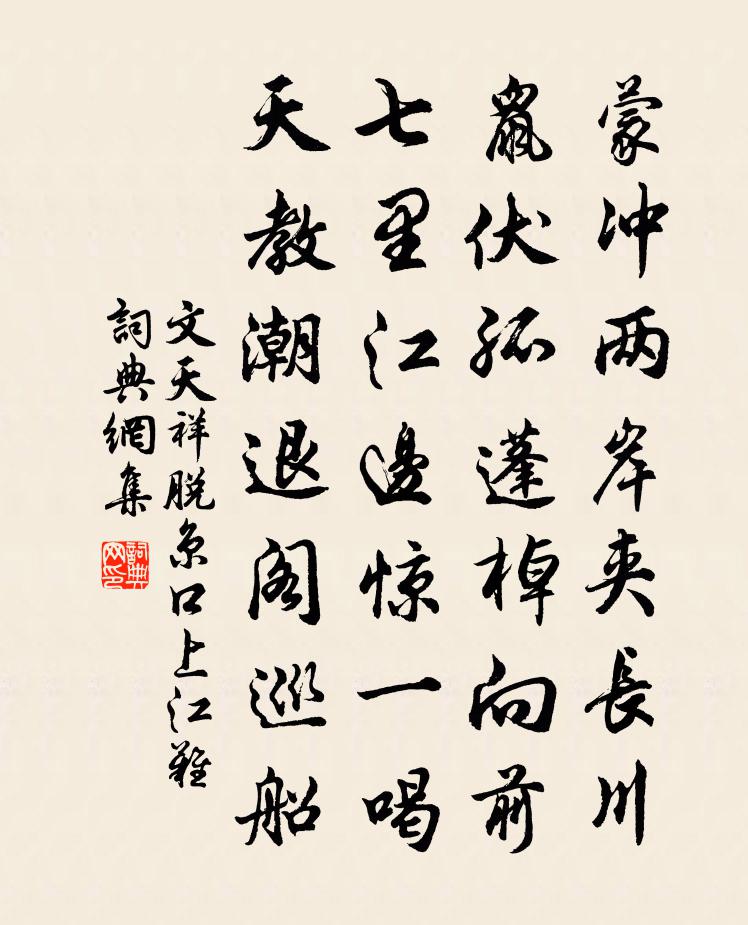 蒙冲两岸夹長川
鼠伏孤蓬棹向前
七里江邊惊一喝
天教潮退阁巡船
文天祥脱京口上江難
詞典網集
詞典
网印